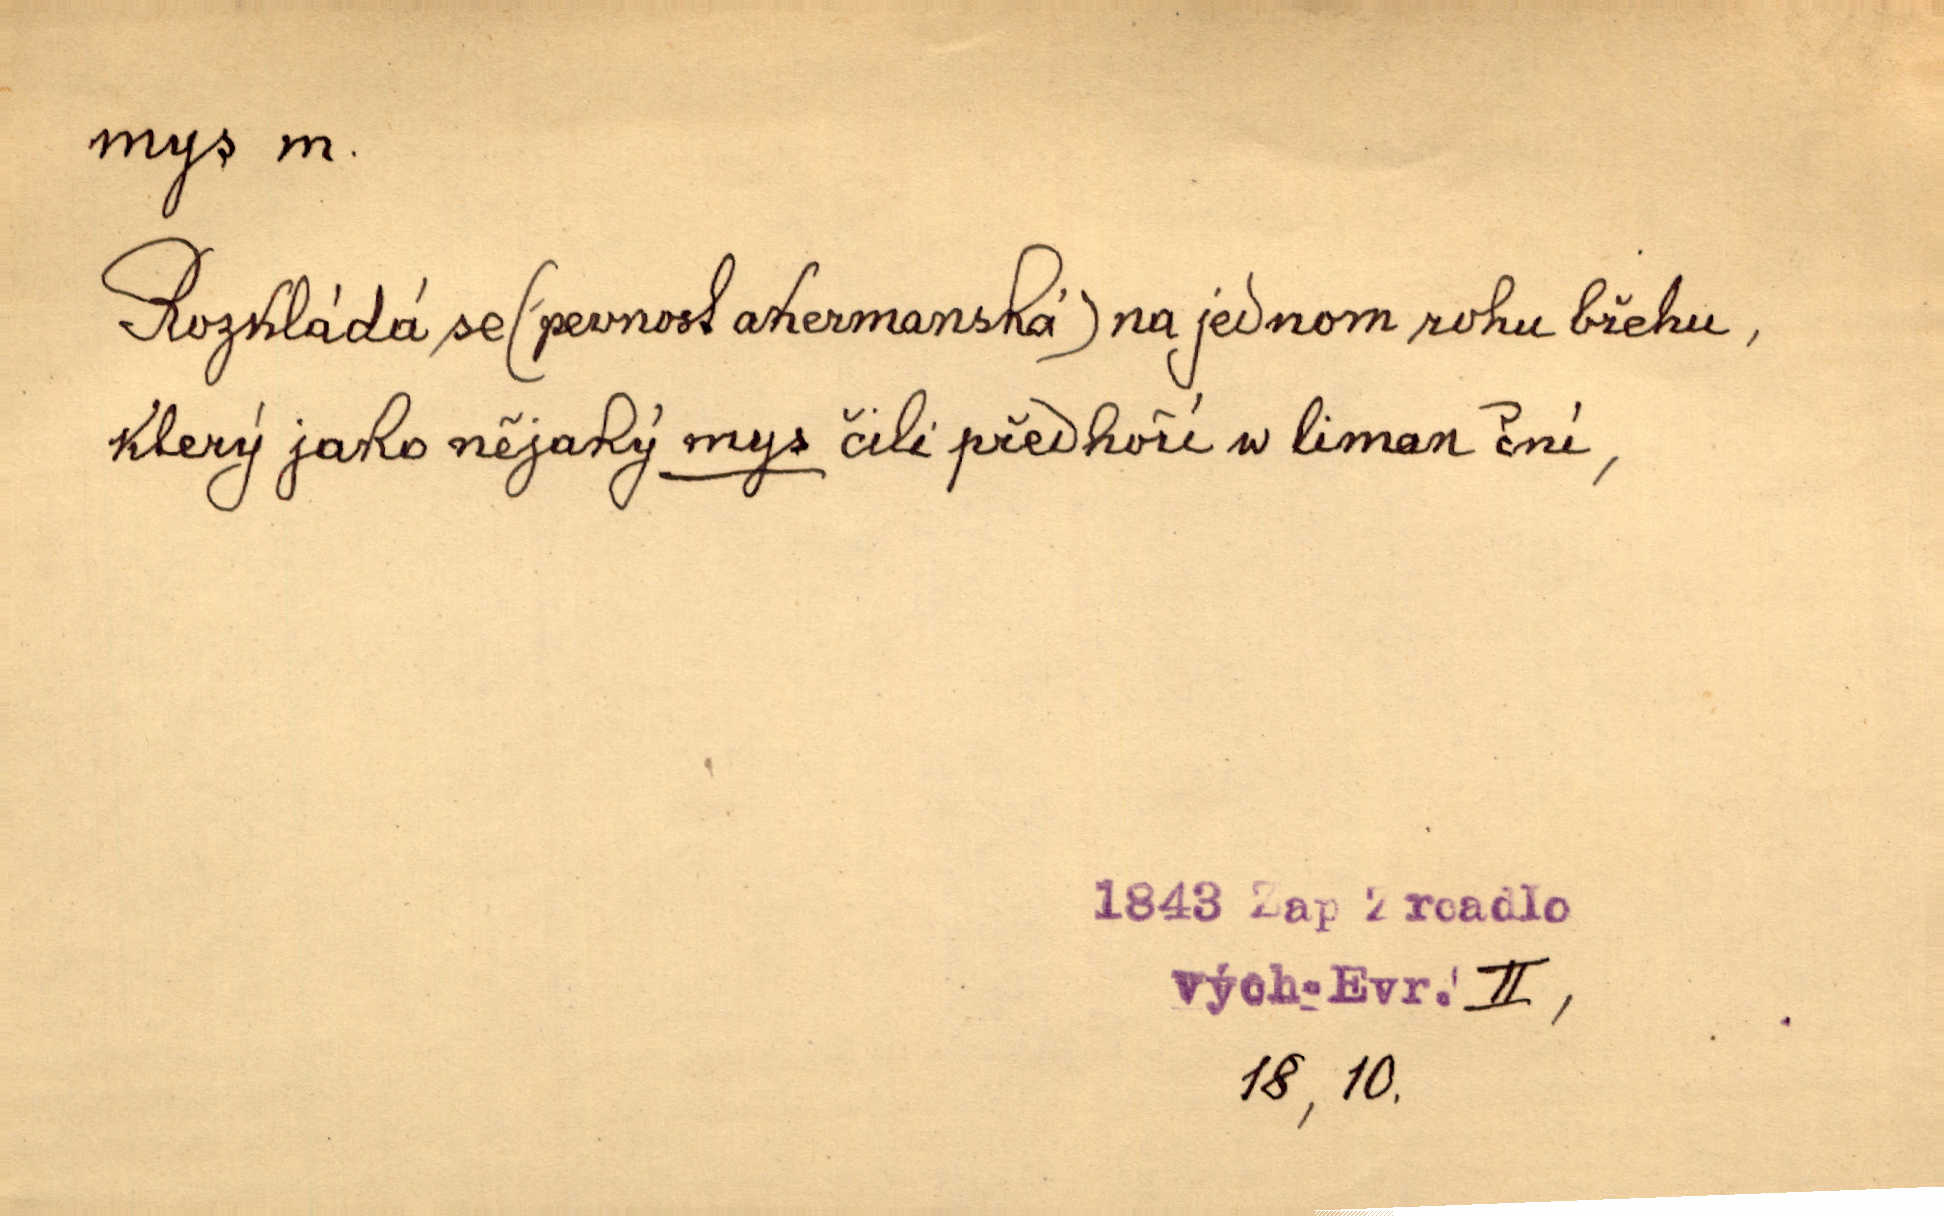 mys m.
Rozkládá se (pevnost akermanská) na jednom rohu břehu,
který jako nějaký mys čili předhoří w liman ční,
1843 Zap Zrcadlo
vých. Evr. II,
18, 10.